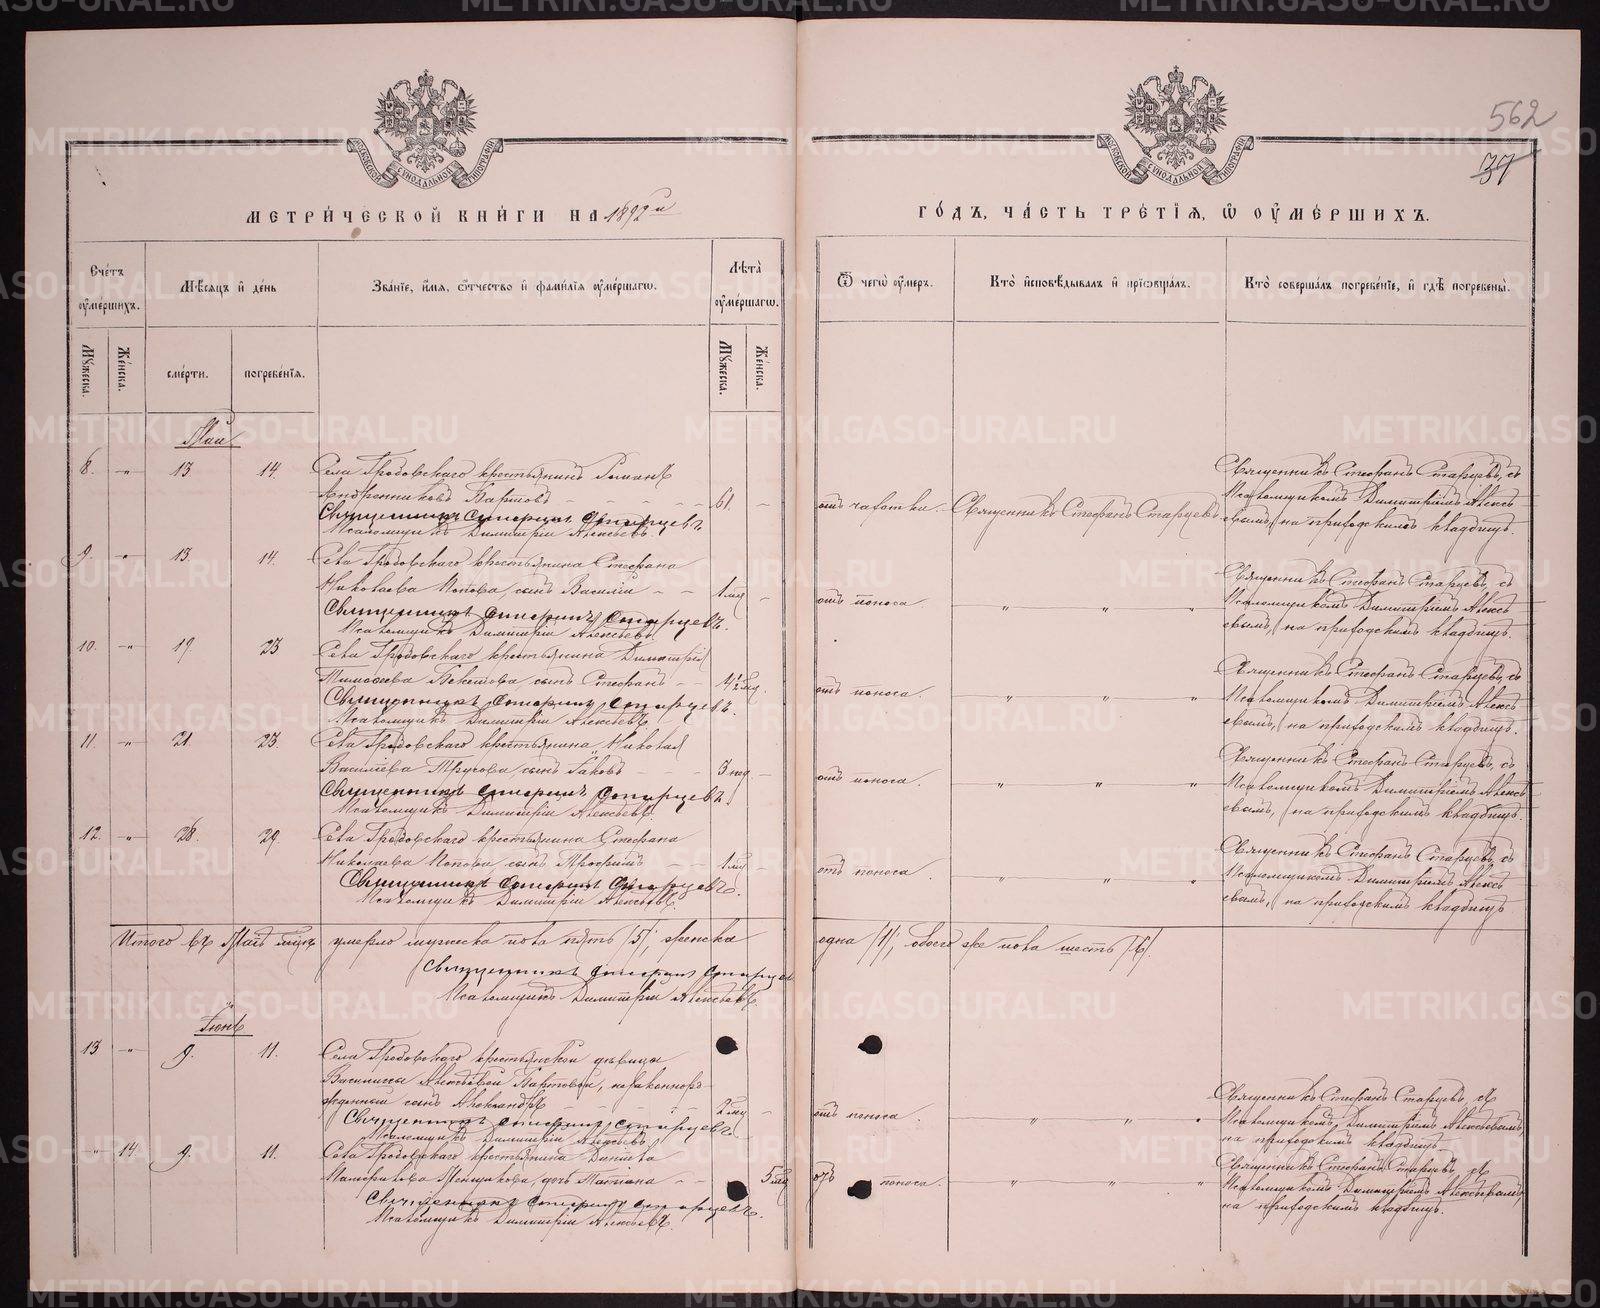 562
37
МОСКОВСКОЙ СѴНОДАЛЬНОЙ ТИПОГРАФІИ
МОСКОВСКОЙ СѴНОДАЛЬНОЙ ТИПОГРАФІИ
МЕТРИ́ЧЕСКОЙ КНИ́ГИ НА 1892й
ГО́ДЪ, ЧА́СТЬ ТРЕ́ТІЯ, Ѽ ОУ҆МЕ́РШИХЪ.
Сче́тъ оу҆ме́ршихъ.
Мꙋ́жеска.
Же́нска.
Мѣ́сѧцъ и҆ де́нь
сме́рти.
погребе́нїѧ.
Зва́нїе, и҆́мѧ, ѻ҆́тчество и҆ фами́лїѧ оу҆ме́ршагѡ.
Лѣта̀ оу҆ме́ршагѡ.
Мꙋ́жеска.
Же́нска.
Ѿ чегѡ̀ оу҆́меръ.
Кто̀ и҆сповѣ́дывалъ и҆ прїѡбща́лъ.
Кто̀ соверша́лъ погребе́нїе, и҆ гдѣ̀ погребены̀.
Май
8. -"- 13 14. Села Гробовскаго крестьянинъ Романъ
Андрониковъ Паршовъ 61. отъ чахотки. Священникъ Стефанъ Старцевъ
Священникъ Стефанъ Старцевъ
Псаломщикъ Димитрій Алексѣевъ.
Священникъ Стефанъ Старцевъ, съ
Псаломщикомъ Димитріемъ Алексѣ
евымъ, на приходскомъ кладбищѣ.
9. -"- 13. 14. Села Гробовскаго крестьянина Стефана
Николаева Попова, сынъ Василій 1 мѣс отъ поноса " " "
Священникъ Стефанъ Старцевъ.
Псаломщикъ Димитрій Алексѣевъ.
Священникъ Стефанъ Старцевъ, съ
Псаломщикомъ Димитріемъ Алексѣ
евымъ, на приходскомъ кладбищѣ.
10. -"- 19. 23 Села Гробовскаго крестьянина Димитрія
Тимофеева сынъ Стефанъ отъ поноса. " " "
Священникъ Стефанъ Старцевъ.
Псаломщикъ Димитрій Алексѣевъ
Священникъ Стефанъ Старцевъ, съ
Псаломщикомъ Димитріемъ Алексѣ
евымъ, на приходскомъ кладбищѣ.
11. -"- 21. 23. Села Гробовскаго крестьянина Николая
Василіева Трусова, сынъ Іаковъ 3 нед отъ поноса. " " "
Священникъ Стефанъ Старцевъ
Псаломщикъ Димитрій Алексѣевъ.
Священникъ Стефанъ Старцевъ, съ
Псаломщикомъ Димитріемъ Алексѣ
евымъ, на приходскомъ кладбищѣ.
12. -"- 28. 29. Села Гробовскаго крестьянина Стефана
Николаева Попова сынъ Трофимъ 1 мѣс отъ поноса. " " "
Священникъ Стефанъ Старцевъ.
Псаломщикъ Димитрій Алексѣевъ.
Священникъ Стефанъ Старцевъ, съ
Псаломщикомъ Димитріемъ Алексѣ
евымъ, на приходскомъ кладбищѣ
Итого въ Маѣ мѣсяцѣ умерло мужеска пола пять /5/; женска одна /1/; обоего же пола шесть /6/.
Священникъ Стефанъ Старцевъ
Псаломщикъ Димитрій Алексѣевъ.
Іюнь
13 -"- 9. 11. Села Гробовскаго крестьянской дѣвицы
Василисы Алексѣевой незаконнорожденный
сынъ Александръ 2 мѣс отъ поноса. " "
Священникъ Стефанъ Старцевъ
Псаломщикъ Димитрій Алексѣевъ
Священникъ Стефанъ Старцевъ, съ
Псаломщикомъ Димитріемъ Алексѣевымъ
на приходскомъ кладбищѣ
-"- 14. 9. 11. Села Гробовскаго крестьянина Даніила
дочь Татіана 5 мѣс отъ поноса. " " "
Священникъ Стефанъ Старцевъ.
Псаломщикъ Димитрій Алексѣевъ.
Священникъ Стефанъ Старцевъ, съ
Псаломщикомъ Димитріемъ Алексѣевымъ,
на приходскомъ кладбищѣ.
METRIKI.GASO-URAL.RU